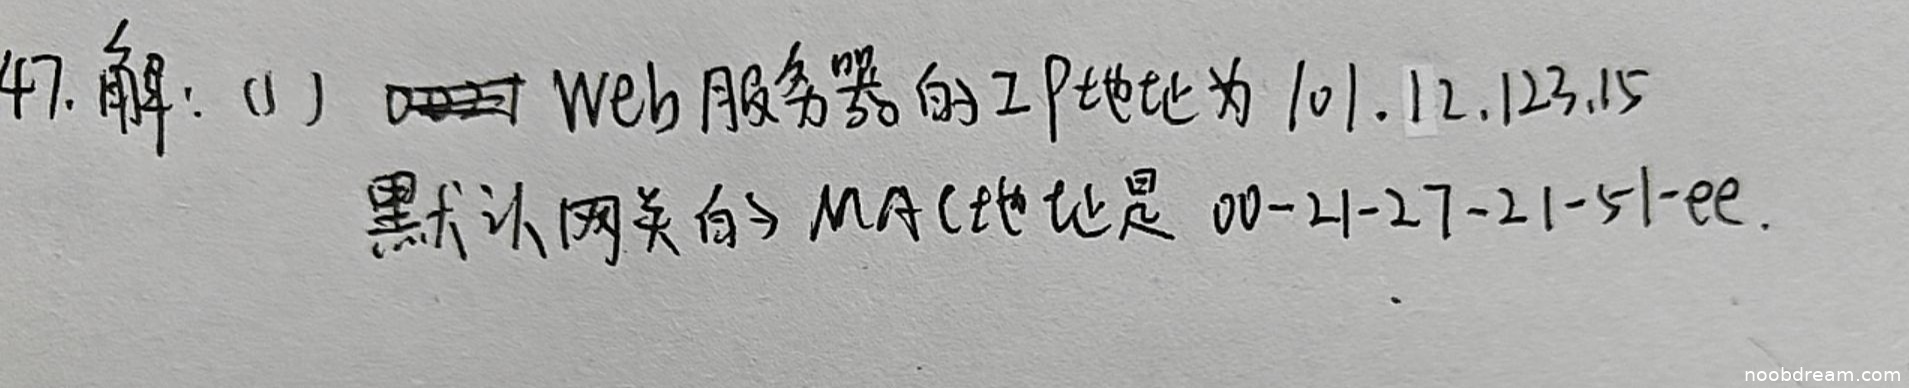 47.解：(1) Web服务器的IP地址为 101.12.123.15
默认网关的MAC地址是 00-21-27-21-51-ee.
noobdream.com